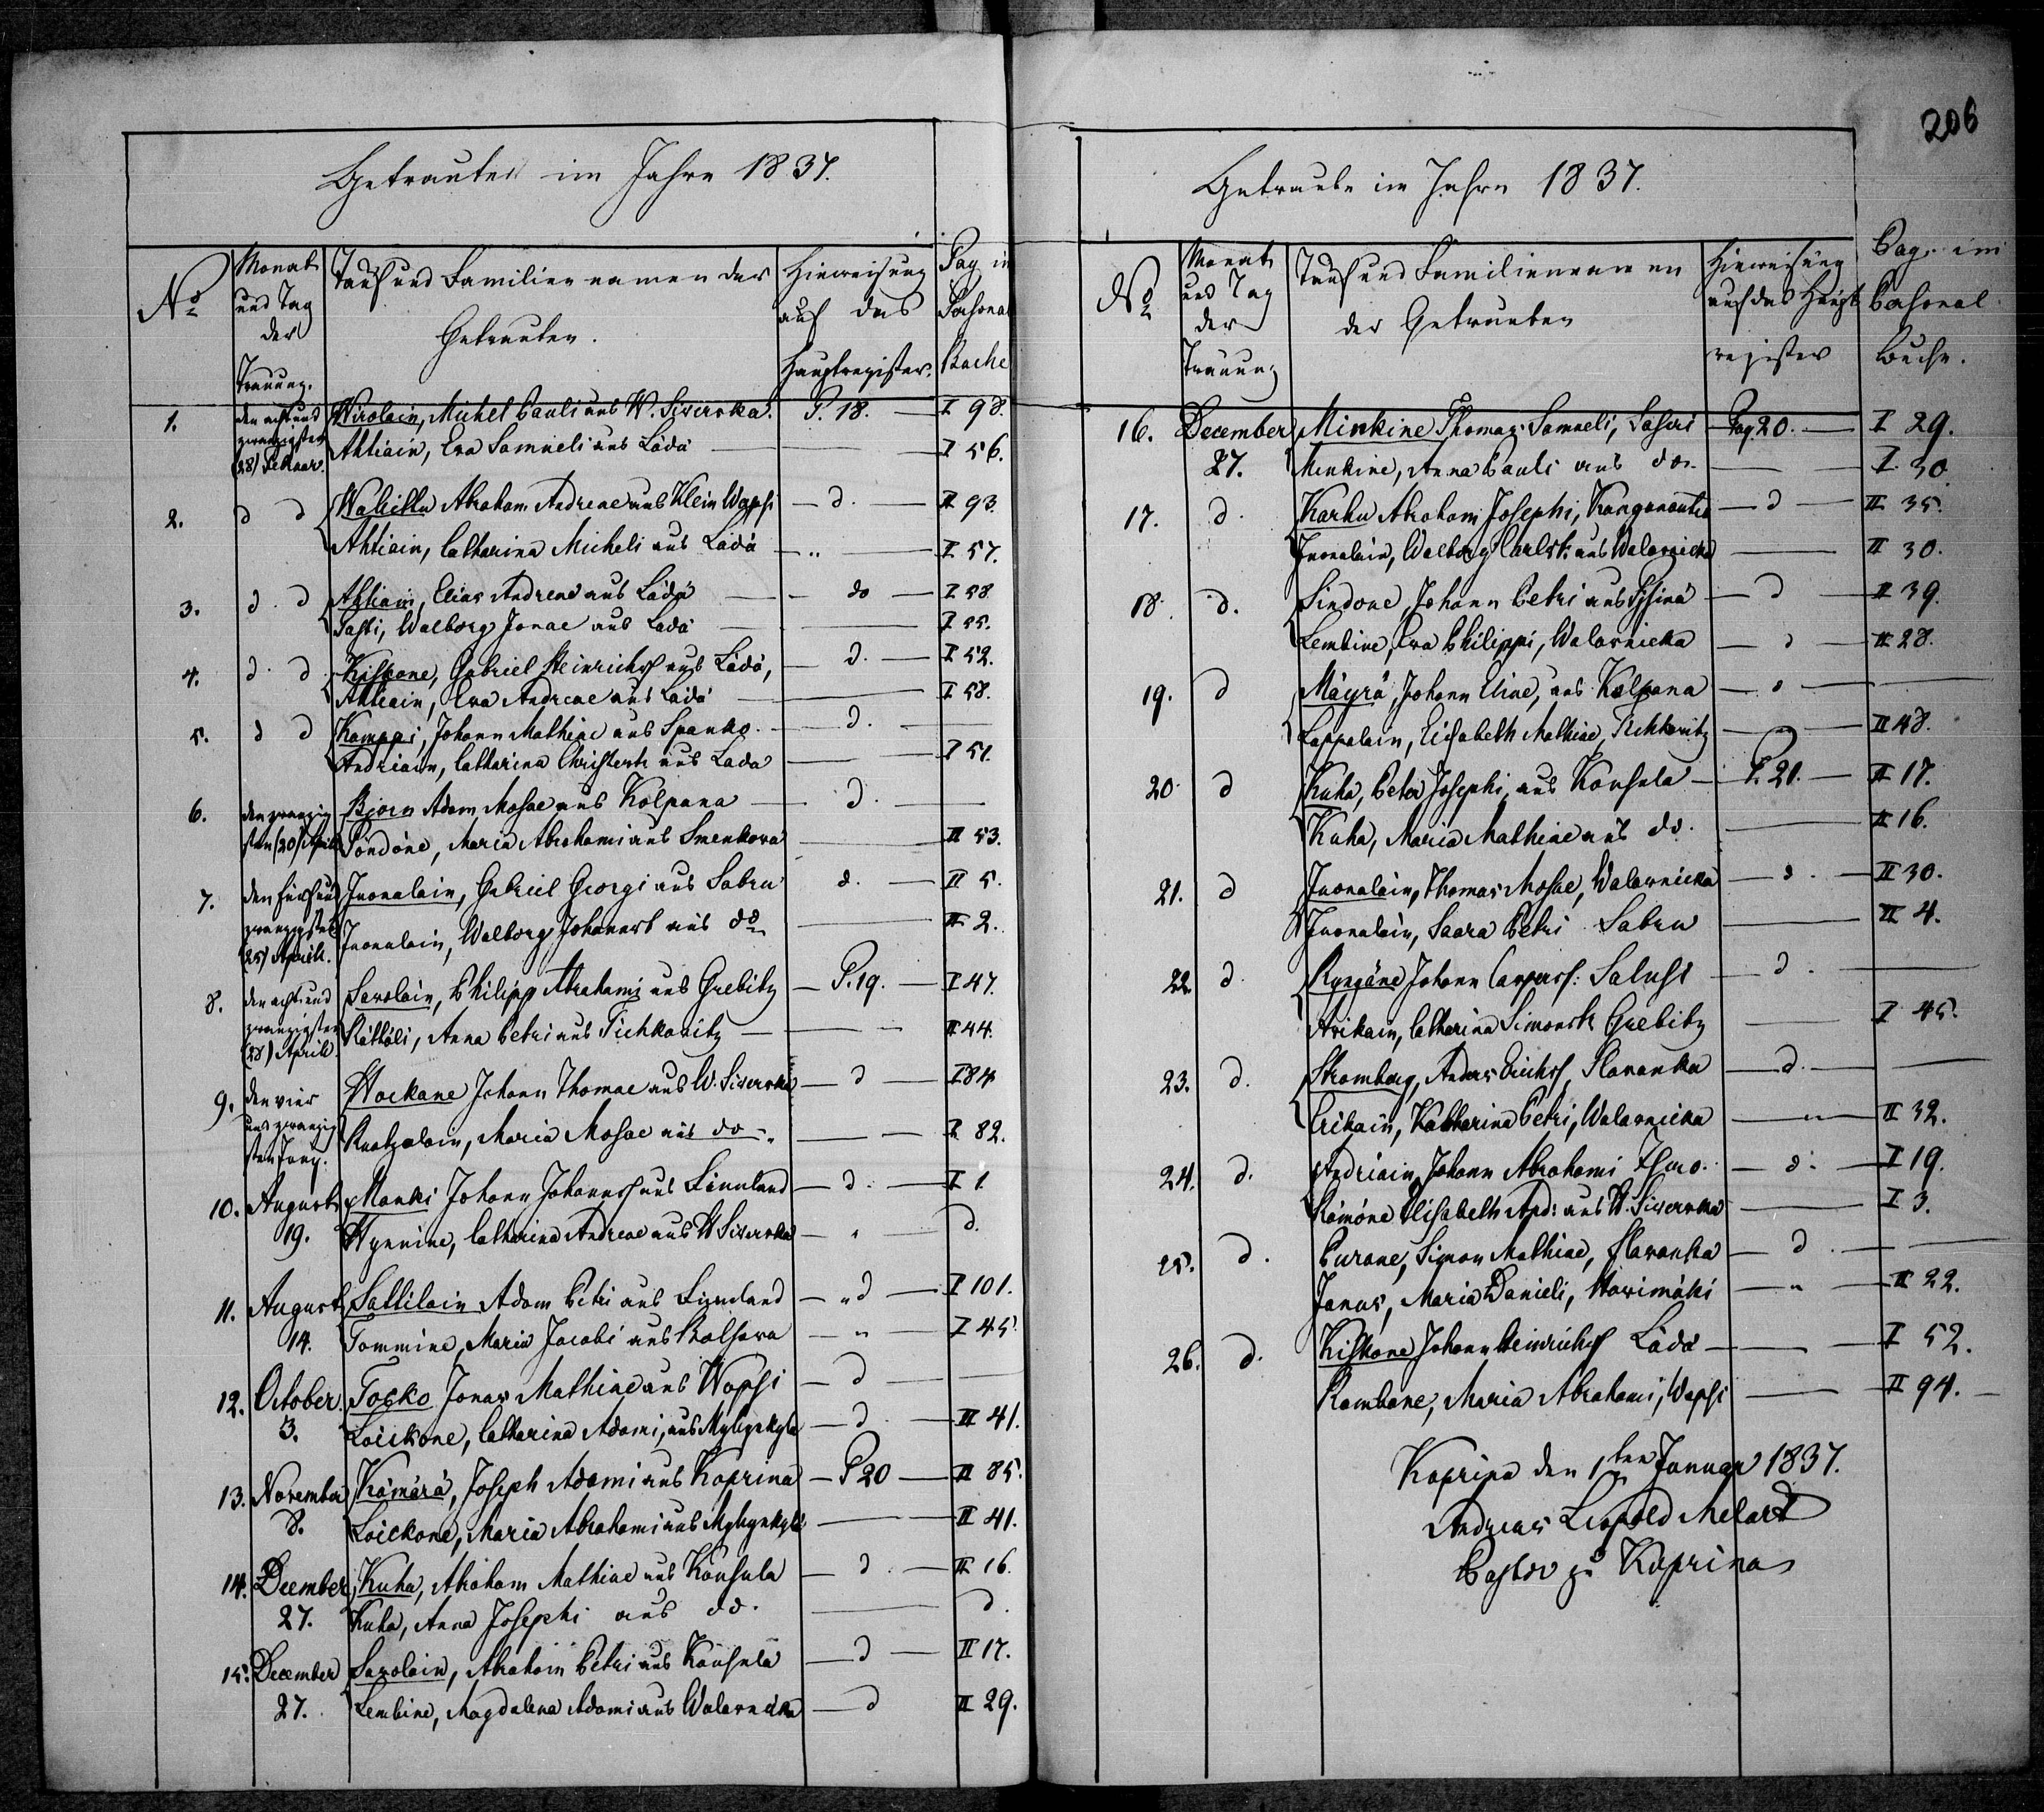 206
Getrauten im Jahre 1837.
No
Monat und Tag der Trauung.
Tauf und Familiennamen der Getrauten.
Hinweisung auf das Hauptregister.
Pag im Personal Buche
1. den acht und zwanzigsten (28) Februar. Wirolain, Michel Pauli aus W. Siwerska. P. 18. I 98.
Ahtiain, Eva Samueli aus Lädä I 56.
2. d d Abraham Andreae aus Klein Wopsi d. II 93.
Ahtiain, Catharina Micheli aus Lädä " I 57.
3. d. d Ahtiain, Elias Andreae aus Lädä do I 58
Walborg Jonae aus Lädä I 55.
4. d. d Kiskone, Gabriel Heinrichs aus Lädä, d. I 52.
Ahtiain, Eva Andreae aus Lädä I 58.
5. d d Kamppi, Johann Mathiae aus Spanko. d.
Andriain, Catharina Christerk aus Lada I 51.
6. den zwanzigsten (20) April Bjorn Adam Mosae aus Kolpana d.
Söndöne, Maria Abrahami aus Smenkova II 53.
7. den fünf und zwanzigsten (25) Aprill. Inonalain, Gabriel Georgi aus Sabru d. II 5.
Inonalain, Walborg Johannsk aus do II 2.
8. den acht und zwanzigsten (28) Aprill. Savolain, Philipp Abrahami aus Grebitz P. 19. I 47.
Rättäli, Anna Petri aus Tichkowitz II 44.
9. den vier und zwanzigsten Juny. Hockane Johann Thomae aus W. Siwerska d I 84
Maria Mosae aus do " I 82.
10. August 19. Manki Johann Johanns aus Linnland d. I 1.
Hynnine, Catharina Andreae aus W Siwerska " d.
11. August 14. Sattilain Adam Petri aus Linnland " d I 101.
Tommine, Maria Jacobi aus Rolsova " I 45.
12. October. 3. Tosko Jonas Mathiae aus Wopsi d
Loickone, Catharina Adami, aus Myllynkylä d. II 41.
13. November 8. Kämärä, Joseph Adami aus Koprina P 20 II 85.
Loickone, Maria Abrahami aus Myllynkylä II 41.
14. December 27. Kuha, Abraham Mathiae aus Kousula d. II 16.
Kuha, Anna Josephi aus do. d.
15. December 27. Savolain, Abraham Petri aus Kousula d II 17.
Lembine, Magdalena Adami aus Walarnicka d II 29.
Getraute im Jahre 1837.
No
Monat und Tag der Trauung
Tauf und Familiennamen der Getrauten
Hinweisung auf das Haupt register
Pag. im Personal buche.
16. December 27. Minkine Thomas Samueli, Saseri Pag 20. I 29.
Menkine, Anna Pauli aus do. I 30.
17. d. Karhu Abraham Josephi, d II 35.
Inonalain, Walborg Carlsk: aus Walarnicka II 30.
18. d. Sindone, Johann Petri aus d II 39.
Lembine, Eva Philippi, Walarnicka d II 28.
19. d Mäyrä, Johann Eliae, aus Kolpana d
Lappalain, Elisabeth Mathiae, Tichkowitz II 48.
20. d Kuha, Peter Josephi, aus Kousula P. 21. II 17.
Kuha, Maria Mathiae aus do. II 16.
21. d Inonalain, Thomas Mosae, Walarnicka d. II 30.
Inonalain, Saara Petri Sabru II 4.
22. d. Ryngäne Johann Caspers: Salusi d.
Arikain, Catharina Simonsk Grebitz I 45.
23. d. Stromberg, Anders Erichs, Slavanka d.
Erikain, Katharina Petri, Walarnicka " II 32.
24. d. Andriain, Johann Abrahami d. I 19.
Römöne Elisabeth And: aus W. Siwerska I 3.
25. d. Purane, Simon Mathiae, Slavanka d.
Janus, Maria Danieli, Horimäki " II 22.
26. d. Kiskone Johann Heinrichs Lädä I 52.
Rombane, Maria Abrahami, Wopsi II 94.
Koprina den 1ten Januar 1837.
Andreas Leopold Melart
Pastor zu Koprina